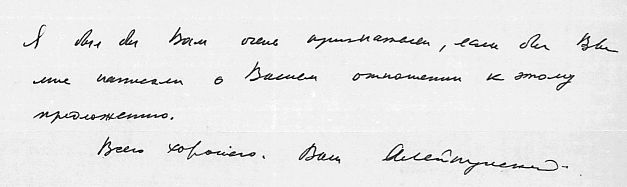 Я был бы Вам очень признателен, если бы Вы
мне написали о Вашем отношении к этому
предложению.
Всего хорошего. Ваш Алейпунский